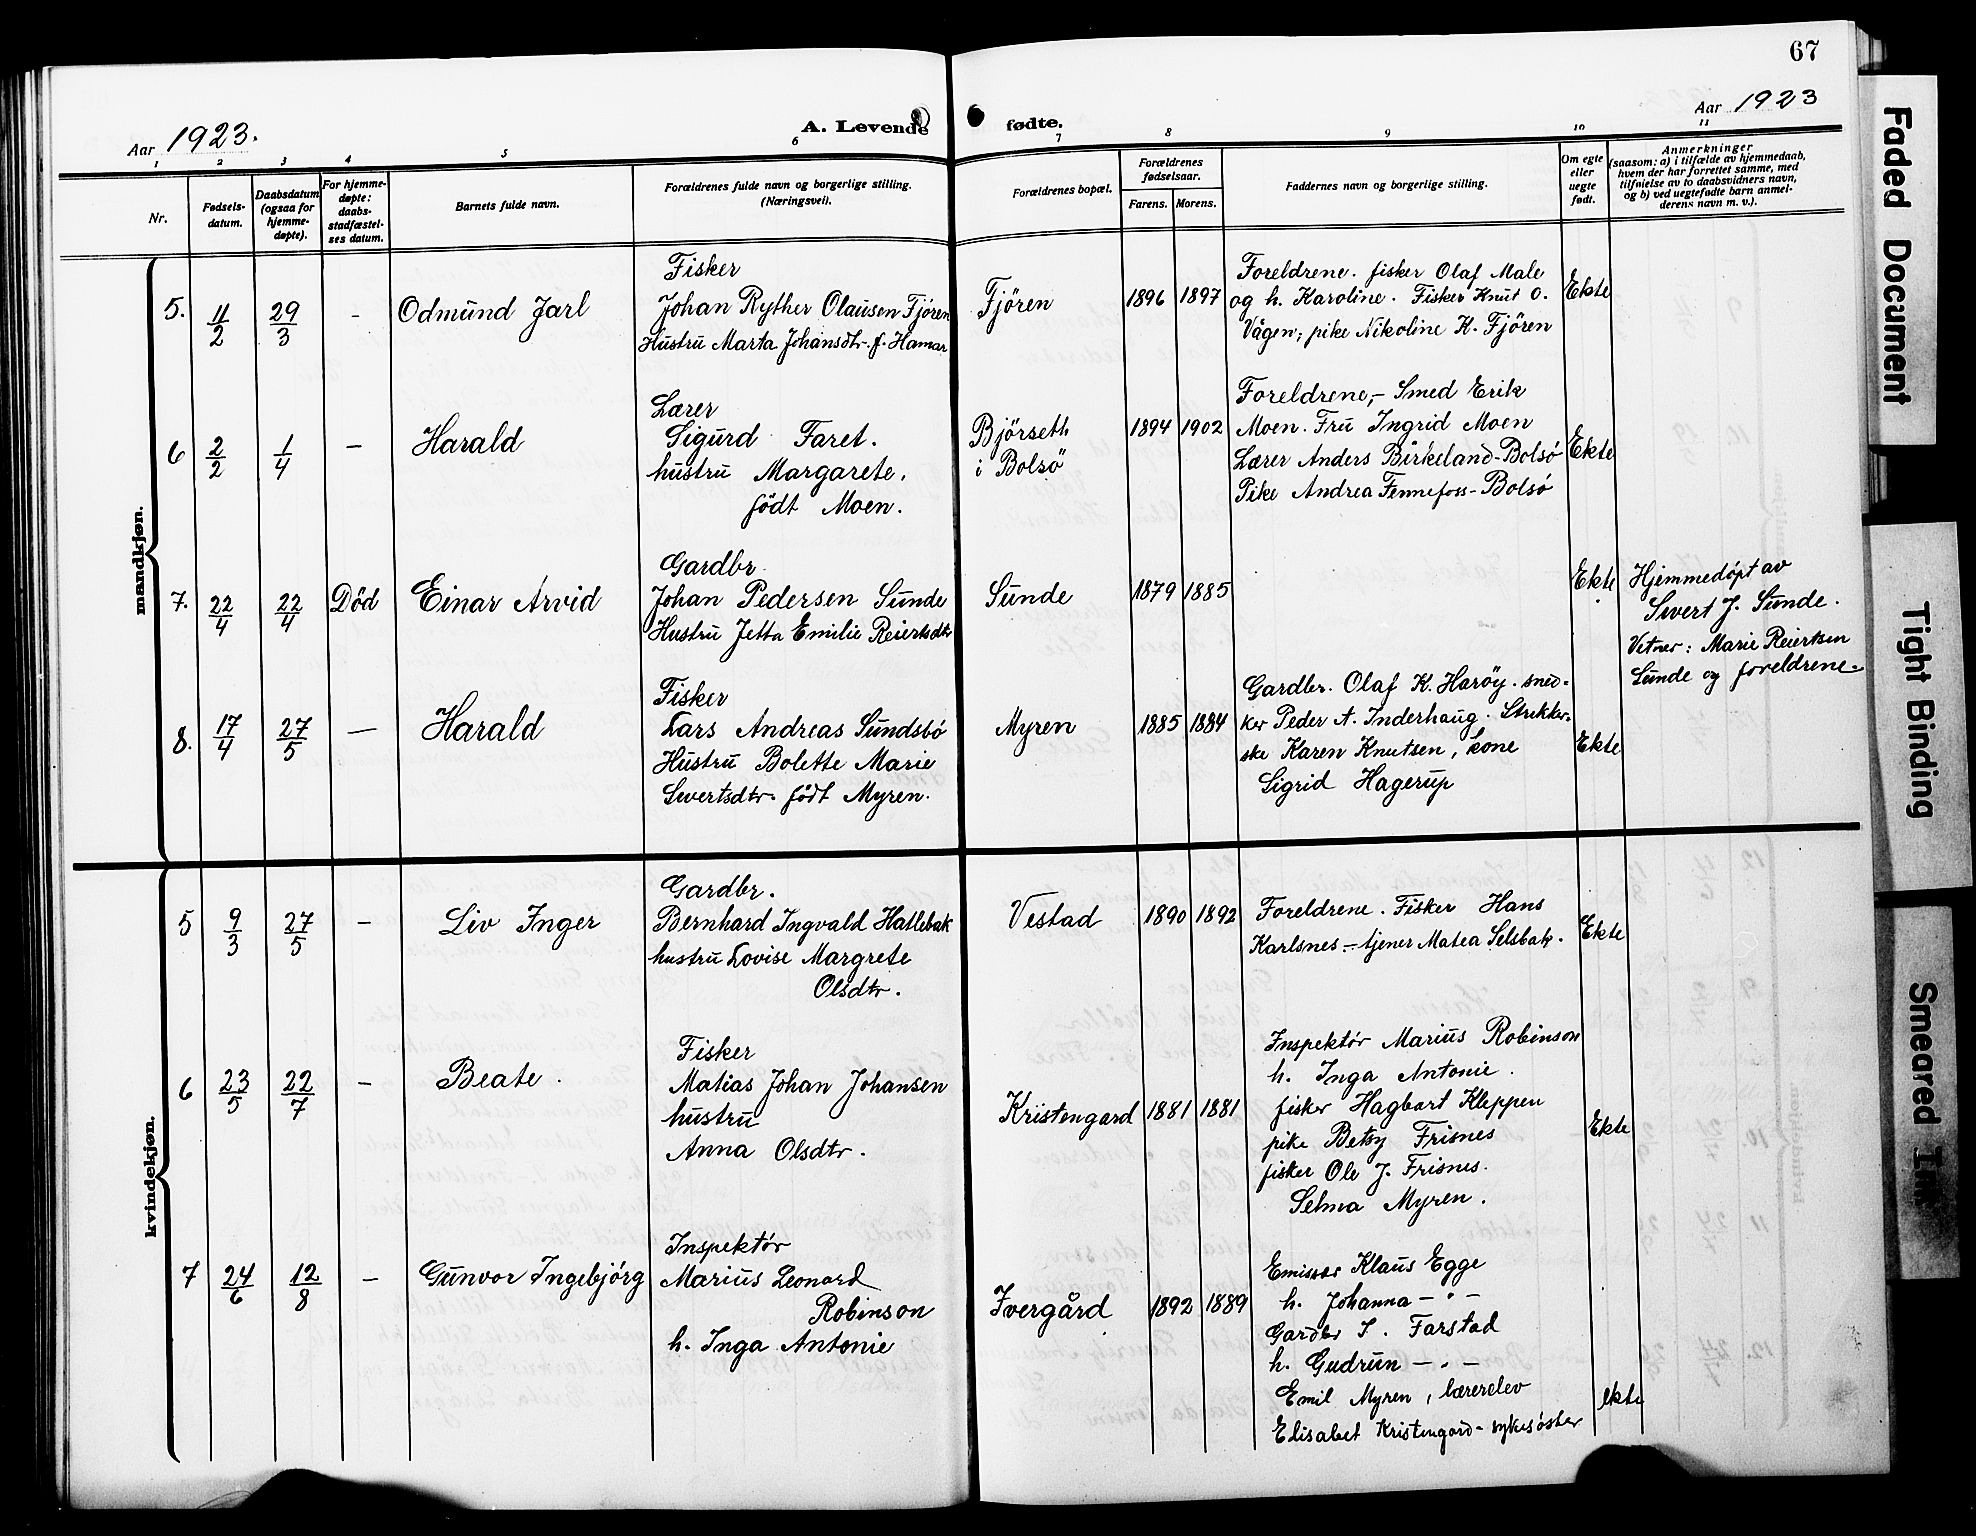 67
Aar 1923.
A. Levende fødte.
Aar 1923
1 2 3 4 5 6 7 8 9 10 11
Nr.
Fødsels-
datum.
Daabsdatum
(ogsaa for
hjemme-
døpte).
For hjemme-
døpte:
daabs-
stadfæstel-
ses datum.
Barnets fulde navn.
Forældrenes fulde navn og borgerlige stilling.
(Næringsvei).
Forældrenes bopæl.
Forældrenes
fødselsaar.
Farens. Morens.
Faddernes navn og borgerlige stilling.
Om egte
eller
uegte
født.
Anmerkninger
(saasom: a) i tilfælde av hjemmedaab,
hvem der har forrettet samme, med
tilføielse av to daabsvidners navn,
og b) ved uegtefødte barn anmel-
derens navn m. v.).
mandkjøn.
5. 11/2 29/3 - Odmund Jarl
Fisker
Johan Ryther Olausen Fjören
Hustru Marta Johansdtr. f. Hamar
Fjören 1896 1897
Foreldrene. fisker Olaf Male
og h. Karoline. Fisker Knut O.
Vågen; pike Nikoline K. Fjören
Ekte
6 2/2 1/4 - Harald
Lærer
Sigurd Faret.
hustru Margarete.
födt Moen.
Björseth
i Bolsö
1894 1902
Foreldrene,- Smed Erik
Moen. Fru Ingrid Moen
Lærer Anders Birkeland-Bolsø
Pike Andrea Fennefoss-Bolsö
Ekte
7. 22/4 22/4 Död Einar Arvid
Gardbr.
Johan Pedersen Sunde
Hustru Jetta Emilie Reiertsdtr
Sunde 1879 1885
Ekte
Hjemmedöpt av
Sivert J. Sunde.
Vitner: Marie Reiertsen
Sunde og foreldrene.
8. 17/4 27/5 - Harald
Fisker
Lars Andreas Sundsbö
Hustru Bolette Marie
Sivertsdtr. födt Myren.
Myren 1885 1884
Gardbr. Olaf K. Haröy. sned-
ker Peder A. Inderhaug. Strikker-
ske Karen Knutsen, kone
Sigrid Hagerup
Ekte
kvindekjøn.
5 9/3 27/5 - Liv Inger
Gardbr.
Bernhard Ingvald Hatlebak
hustru Lovise Margrete
Olsdtr.
Vestad 1890 1892
Foreldrene. Fisker Hans
Karlsnes.- tjener Matea Selsbak.
Ekte
6 23/5 22/7 - Beate.
Fisker
Matias Johan Johansen
hustru
Anna Olsdtr.
Kristengard 1881 1881
Inspektør Marius Robinson
h. Inga Antonie.
fisker Hagbart Kleppen
pike Betsy Frisnes
fisker Ole J. Frisnes.
Selma Myren.
Ekte
7 24/6 12/8 - Gunvor Ingebjörg
Inspektør
Marius Leonard
Robinson
h. Inga Antonie
Ivergård 1892 1889
Emissær Klaus Egge
h. Johanna - " -
Gardbr I. Farstad
h. Gudrun - " -
Emil Myren, lærerelev
Elisabet Kristengard - sykesøster
ekte
Faded Document
Tight Binding
Smeared Ink